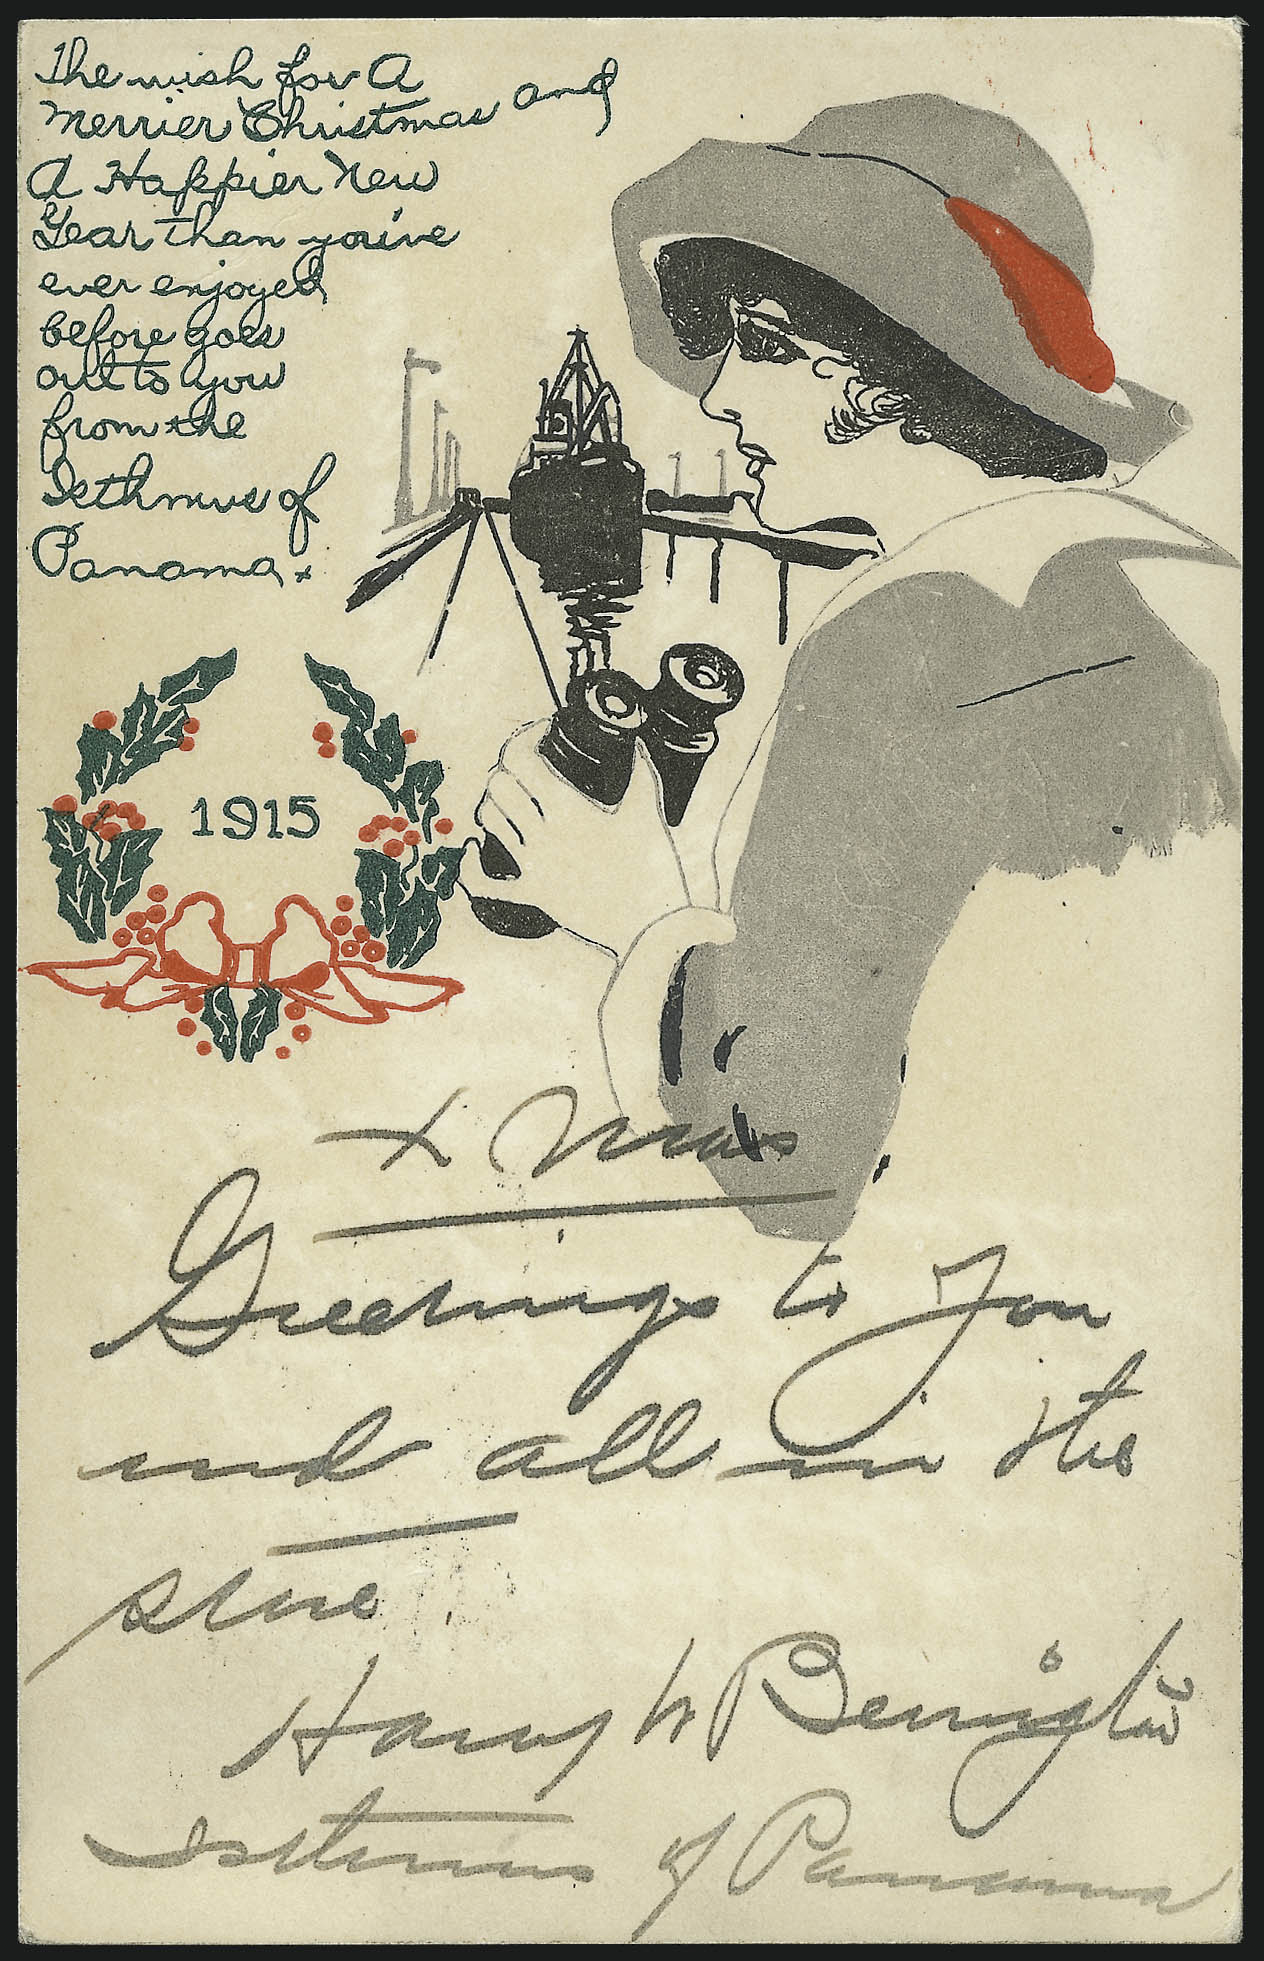 The wish for A
Merrier Christmas and
A Happier New
Year than you've
ever enjoyed
before goes
out to you
from the
Isthmus of
Panama
1915
X Mas
Greetings to You
and all in the
store
Harry W
Isthmus of Panama